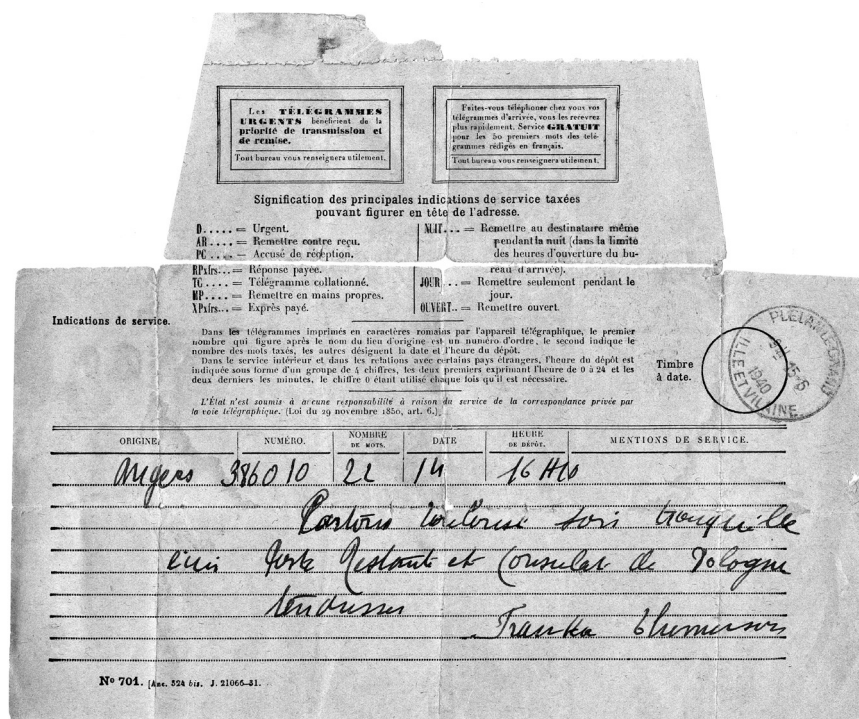 Les TÉLÉGRAMMES
URGENTS bénéficient de la
priorité de transmission et
de remise.
Tout bureau vous renseignera utilement.
Faites-vous téléphoner chez vous vos
télégrammes d'arrivée, vous les recevrez
plus rapidement. Service GRATUIT
pour les 50 premiers mots des télé-
grammes rédigés en français.
Tout bureau vous renseignera utilement.
Signification des principales indications de service taxées
pouvant figurer en tête de l'adresse.
D..... = Urgent.
AR.... = Remettre contre reçu.
PC.... = Accusé de réception.
RPxfrs... = Réponse payée.
TC.... = Télégramme collationné.
MP.... = Remettre en mains propres.
XPxfrs... = Exprès payé.
NUIT... = Remettre au destinataire même
pendant la nuit (dans la limite
des heures d'ouverture du bu-
reau d'arrivée).
JOUR... = Remettre seulement pendant le
jour.
OUVERT.. = Remettre ouvert.
Indications de service.
Dans les télégrammes imprimés en caractères romains par l'appareil télégraphique, le premier
nombre qui figure après le nom du lieu d'origine est un numéro d'ordre, le second indique le
nombre des mots taxés, les autres désignent la date et l'heure du dépôt.
Dans le service intérieur et dans les relations avec certains pays étrangers, l'heure du dépôt est
indiquée sous forme d'un groupe de 4 chiffres, les deux premiers exprimant l'heure de 0 à 24 et les
deux derniers les minutes, le chiffre 0 étant utilisé chaque fois qu'il est nécessaire.
L'État n'est soumis à aucune responsabilité à raison du service de la correspondance privée par
la voie télégraphique. (Loi du 29 novembre 1850, art. 6.)
Timbre
à date.
PLÉLAN-LE-GRAND
15-6
1940
ILLE ET VILAINE
ORIGINE. NUMÉRO. NOMBRE DE MOTS. DATE HEURE DE DÉPÔT. MENTIONS DE SERVICE.
Angers 386010 22 14 16 H10
Partons Toulouse sois tranquille
Poste Restante et Consulat de Pologne
tendresses
Franka Themerson
N° 701. [Anc. 524 bis. J. 21066-31.